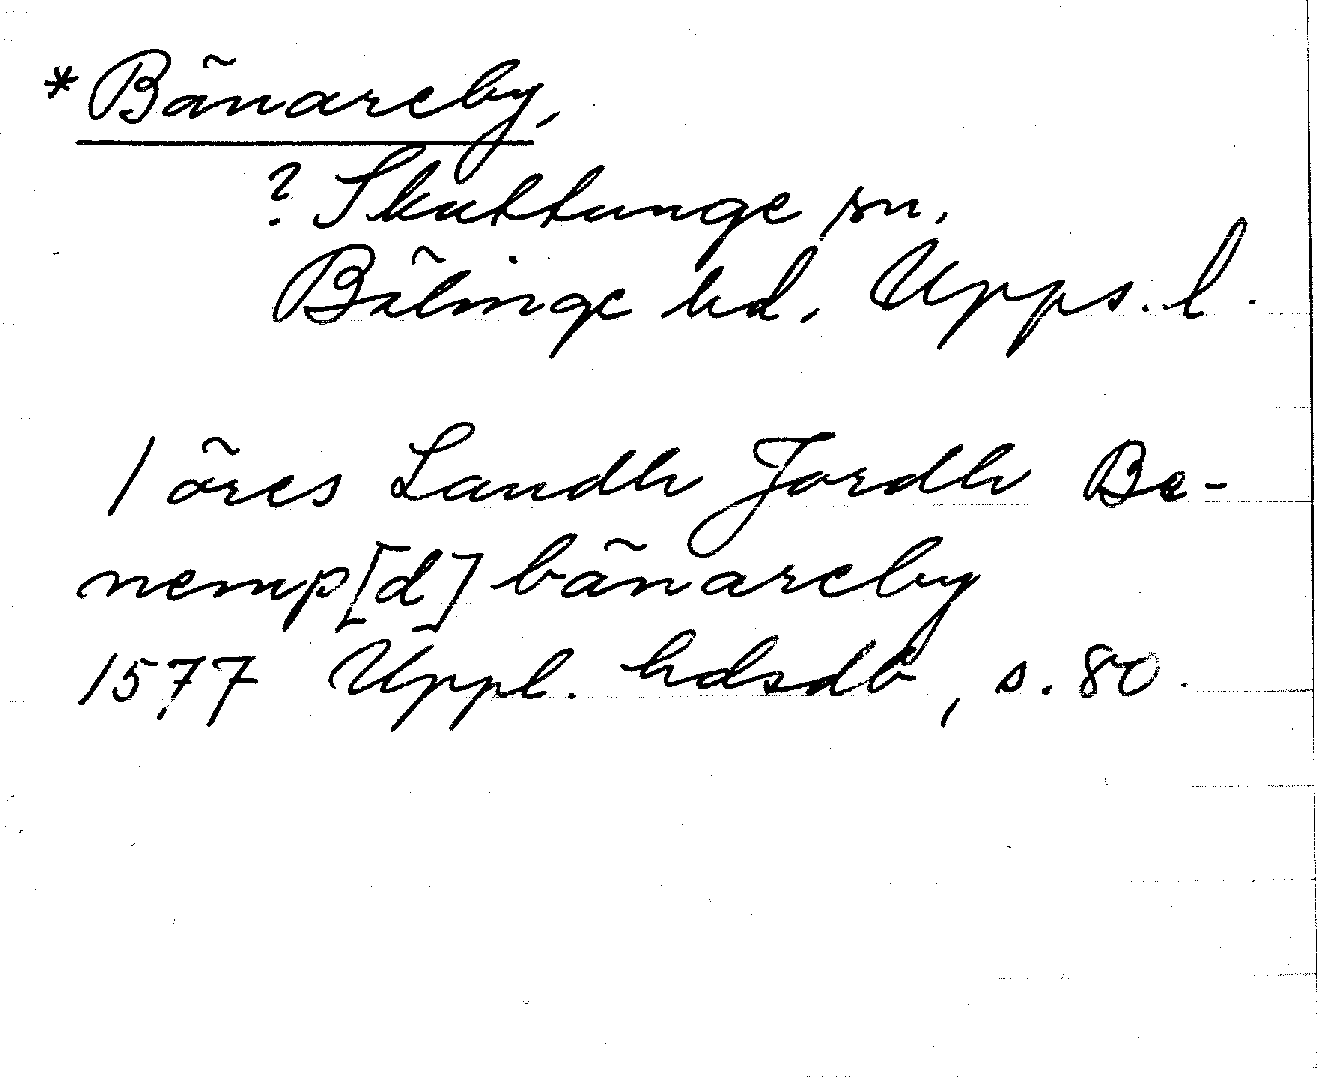 *Bänareby,
? Skuttunge sn.
Bälinge hd. Upps. l.
1 öres Landh Jordh Be-
nemp[d] bänareby
1577 Uppl. hdsdb, s. 80.